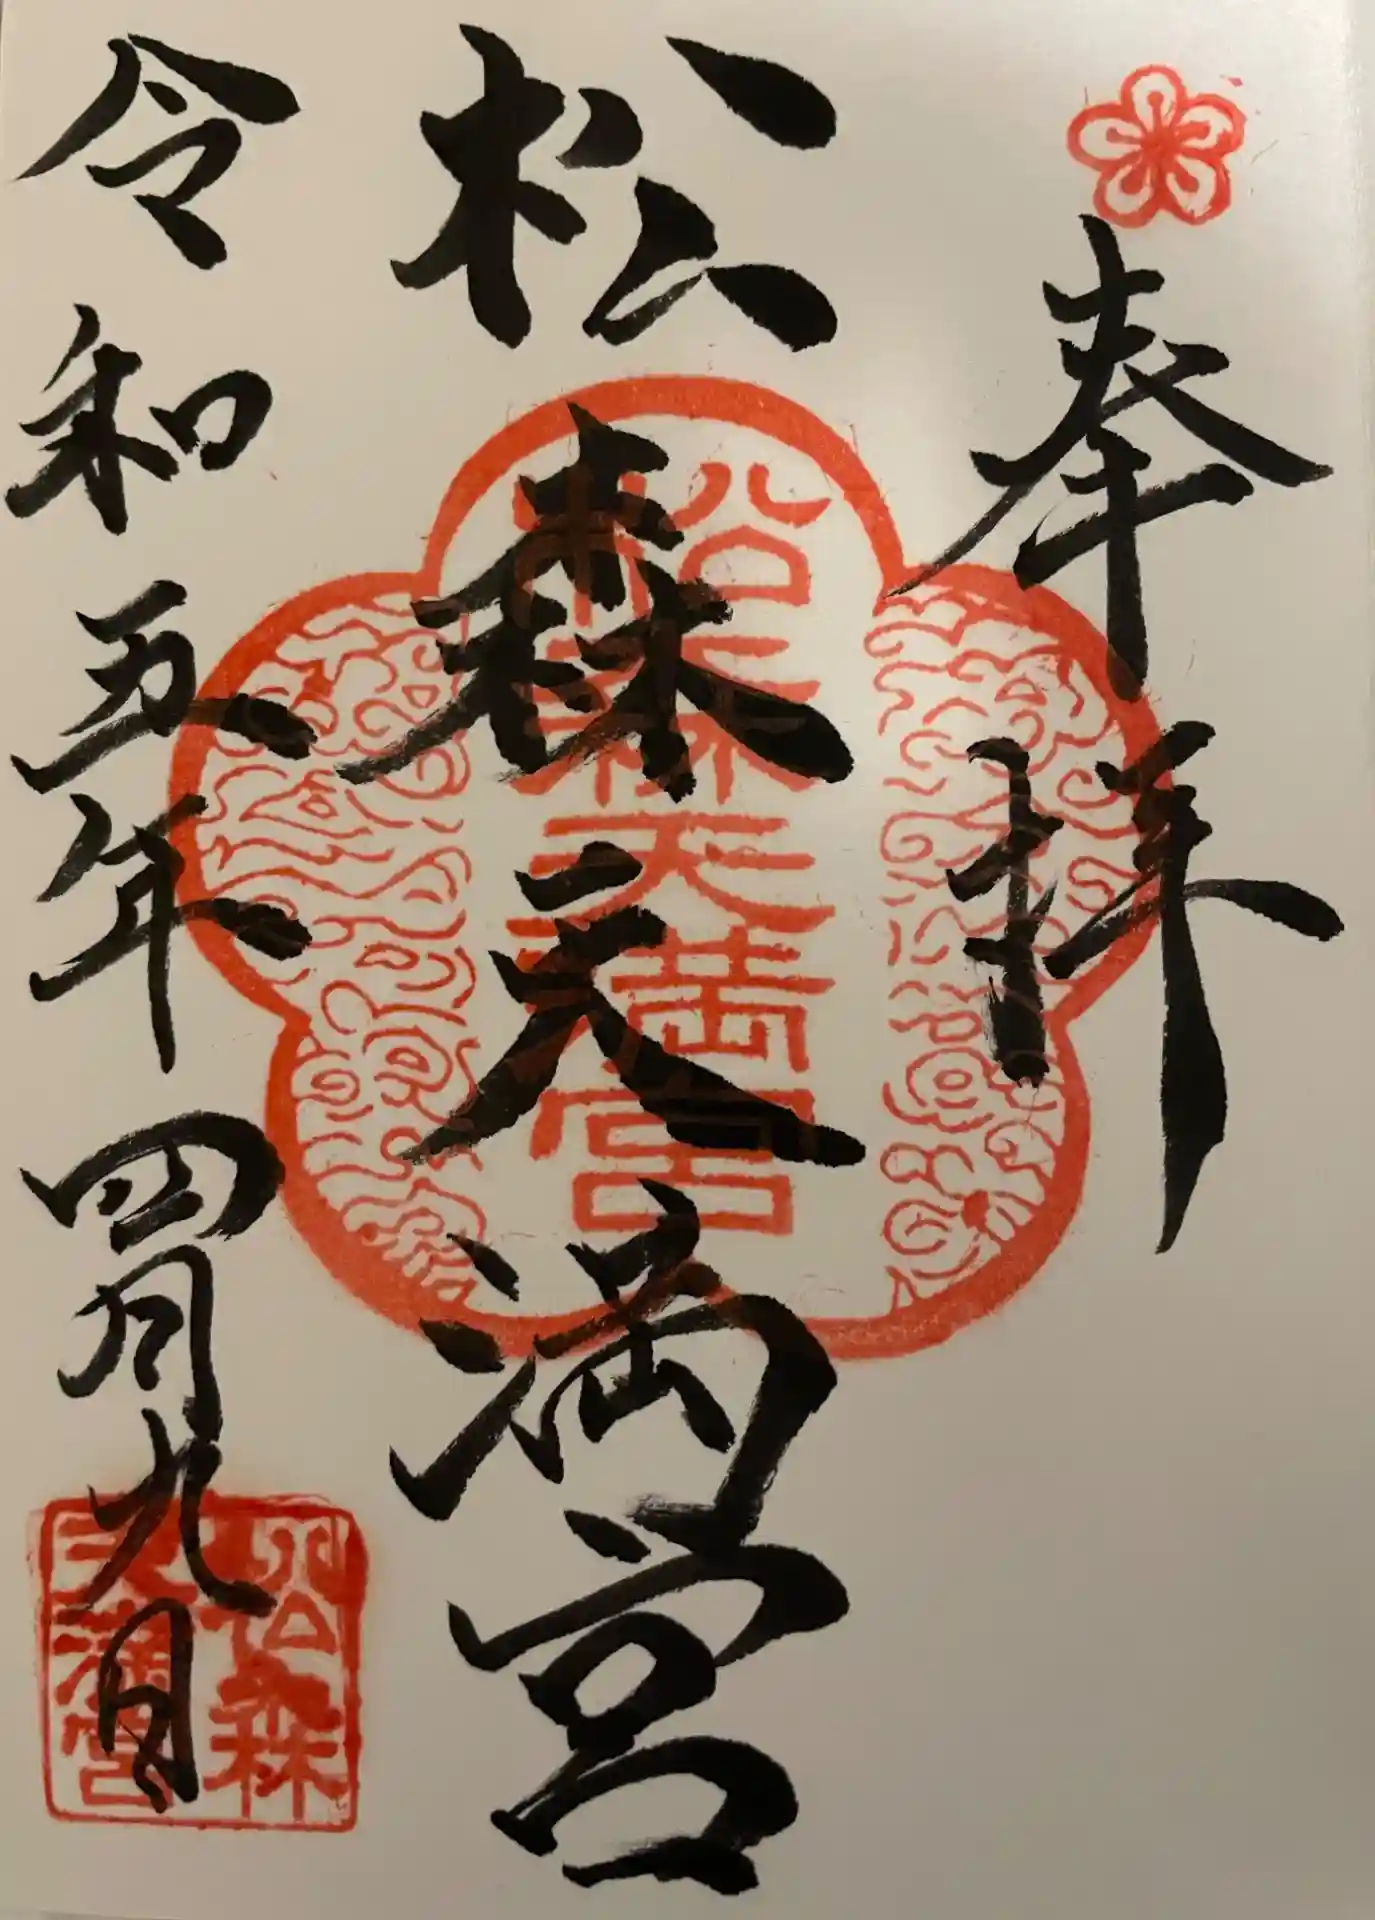 奉拝
松森天満宮
松森天満宮
令和五年四月九日
松森
天満宮